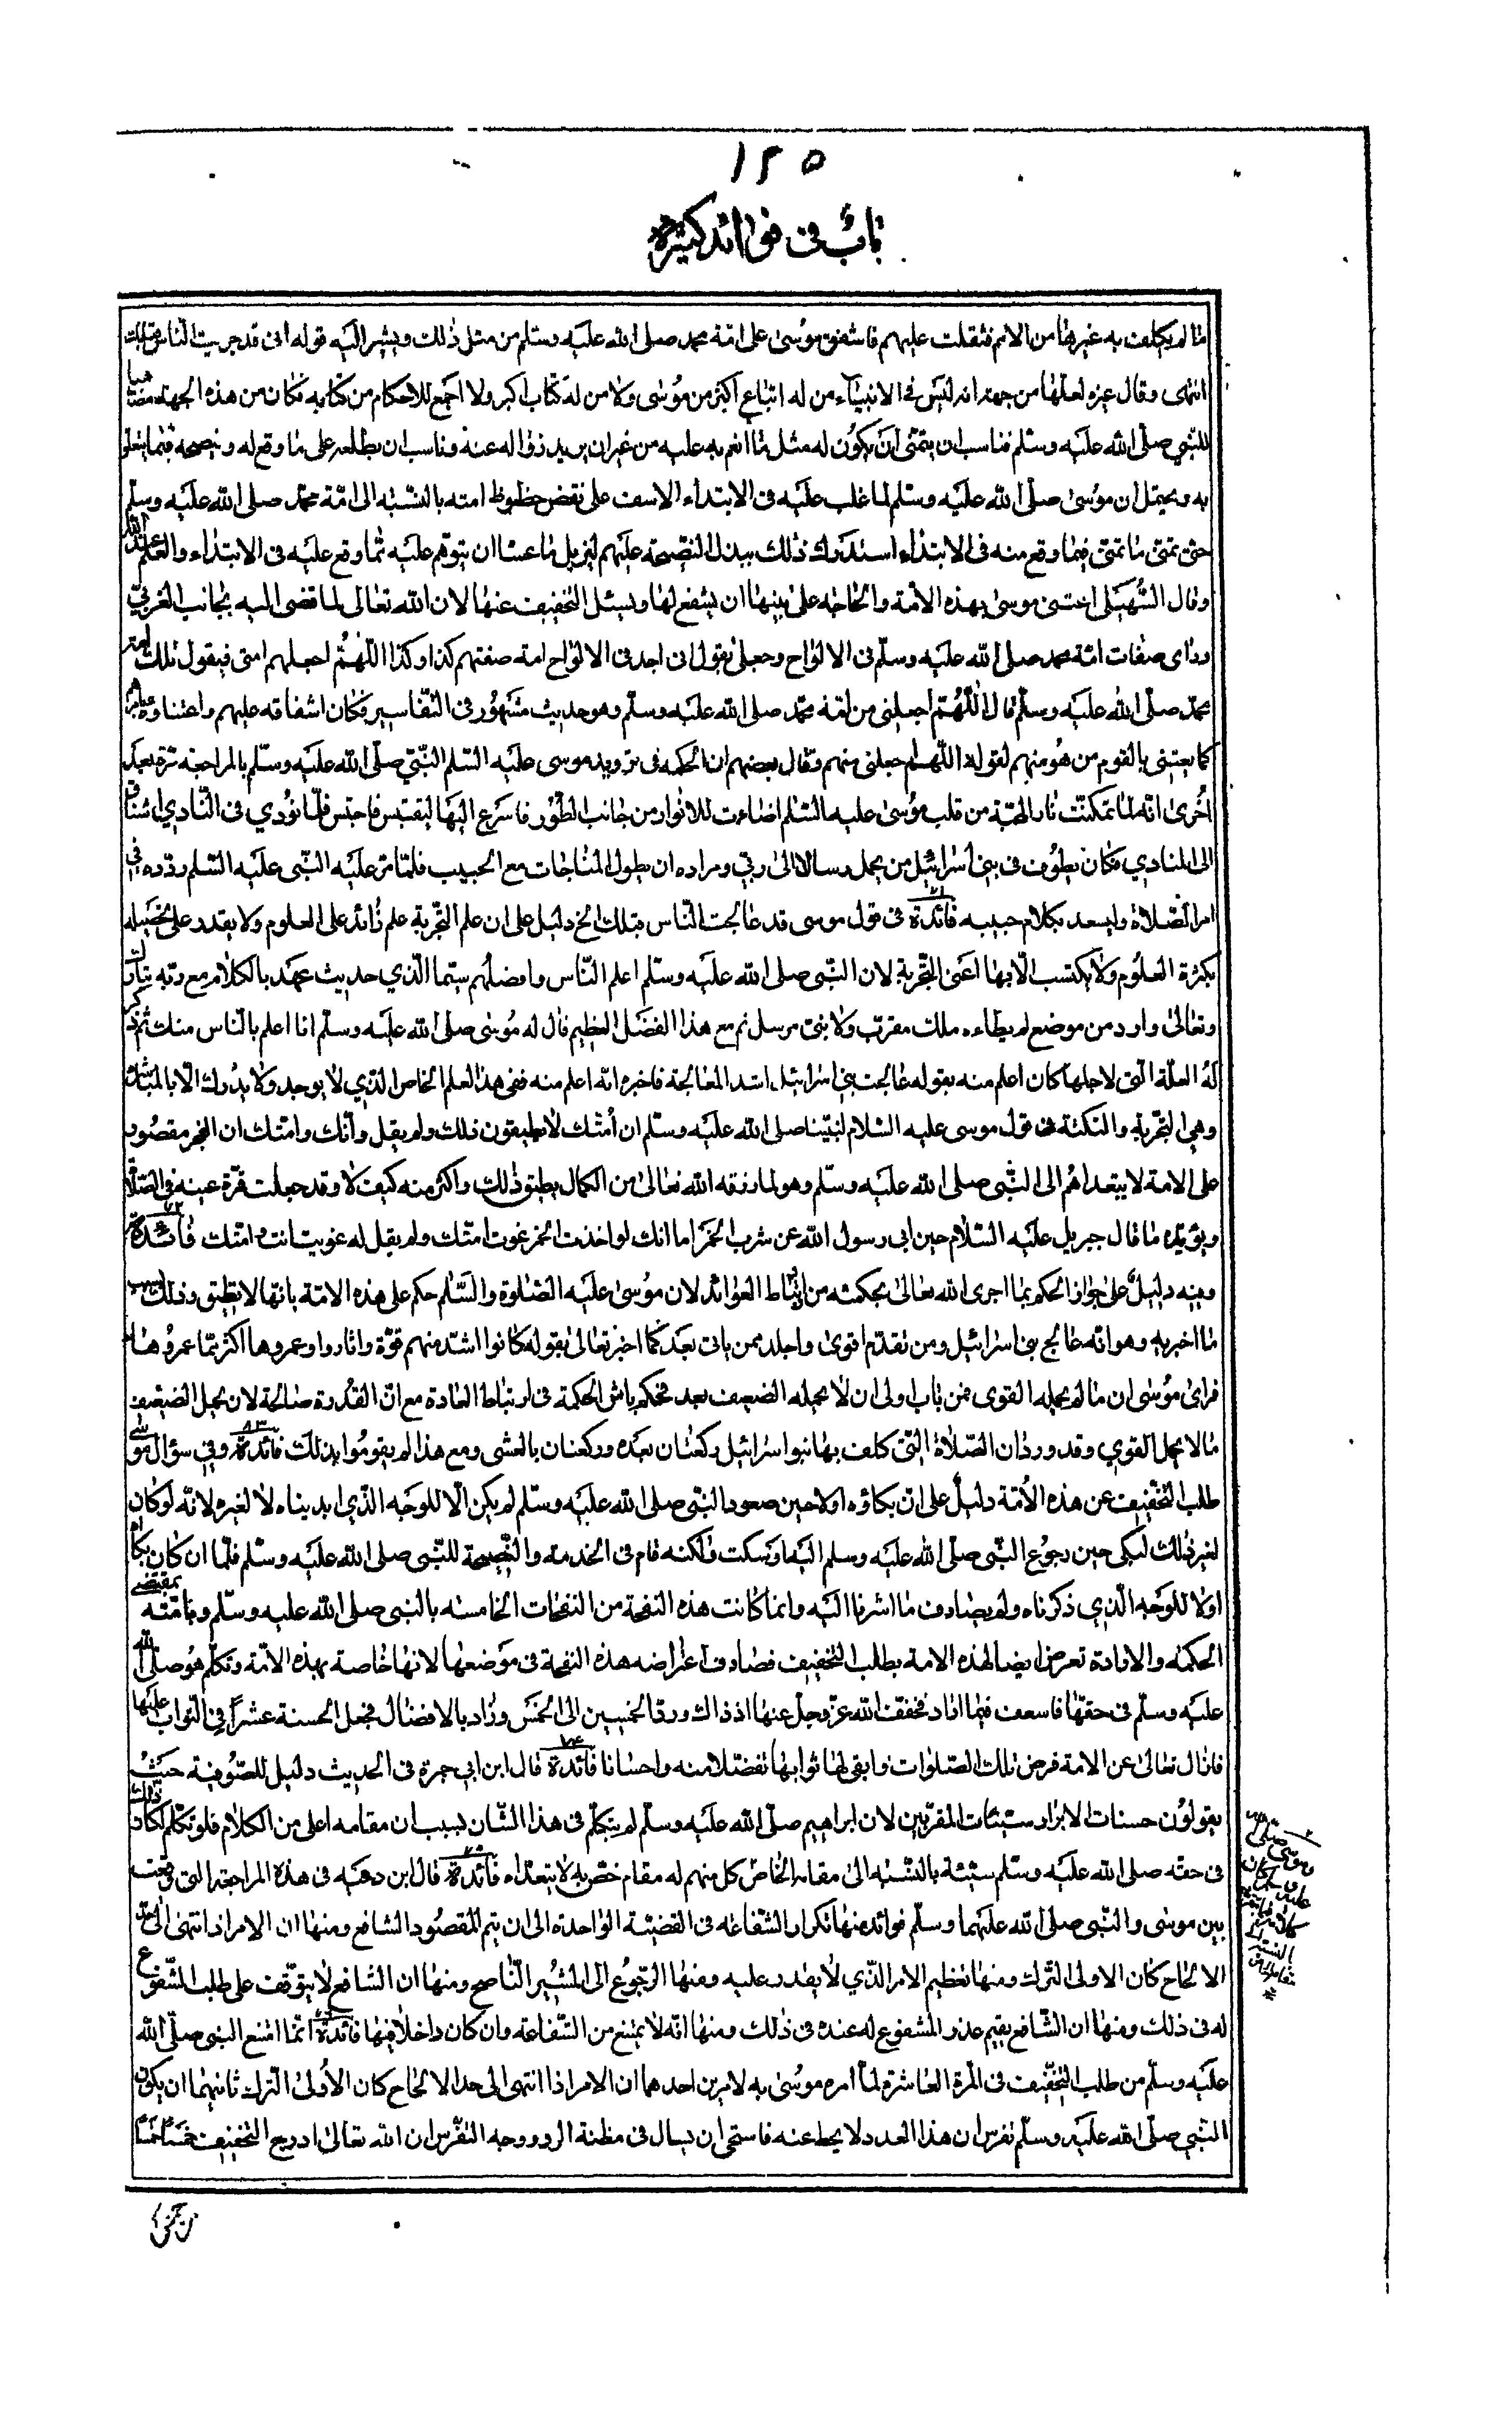 ١٢٥
باب في فوائد كثيرة
ما لم يكلف به غيرها من الامم فثقلت عليهم فاشفق موسى على امة محمد صلى الله عليه وسلم من مثل ذلك ويشير اليه قوله اني قد جربت الناس قبلك
انتهى وقال غيره لعلها من جهة انه ليس في الانبياء من له اتباع اكثر من موسى ولا من له كتاب اكبر ولا اجمع للاحكام من كتابه فكان من هذه الجهة مضاهيا
للنبي صلى الله عليه وسلم فناسب ان يتمنى ان يكون له مثل ما انعم به عليه من غير ان يريد زواله عنه وناسب ان يطلعه على ما وقع له وينصحه فيما يتعلق
به ويحتمل ان موسى صلى الله عليه وسلم لما غلب عليه في الابتداء الاسف على نقص حظوظ امته بالنسبة الى امة محمد صلى الله عليه وسلم
حتى تمنى ما تمنى فيما وقع منه في الابتداء استدرك ذلك ببذل النصيحة عليهم ليزيل ما عسا ان يتوهم عليه مما وقع عليه في الابتداء والعلم عند الله
وقال السهيلي اعتنى موسى بهذه الامة والحاحه على نبيها ان يشفع لها ويسئل التخفيف عنها لان الله تعالى لما قضى اليه بجانب الغربي
وراى صفات امة محمد صلى الله عليه وسلم في الالواح وجعل يقول اني اجد في الالواح امة صفتهم كذا وكذا اللهم اجعلهم امتي فيقول تلك امة
محمد صلى الله عليه وسلم قال اللهم اجعلني من امة محمد صلى الله عليه وسلم وهو حديث مشهور في التفاسير فكان اشفاقه عليهم واعتناوه بامرهم
كما يعتني بالقوم من هو منهم لقوله اللهم اجعلني منهم وقال بعضهم ان الحكمة في ترديد موسى عليه السلم النبي صلى الله عليه وسلم بالمراجعة مرة بعد
اخرى انه لما تمكنت نار المحبة من قلب موسى عليه السلم اضاءت للانوار من جانب الطور فاسرع اليها ليقتبس فاحتبس فلما نودي في النادي اشتاق
الى المنادي فكان يطوف في بني اسرائيل من يحمل رسالا الى ربي ومراده ان يطول المناجات مع الحبيب فلما مر عليه النبي عليه السلم ردده في
امر الصلاة وليسعد بكلام حبيبه فائدة ٧١ في قول موسى قد عالجت الناس قبلك الخ دليل على ان علم التجربة علم زائد على العلوم ولا يقدر على تحصيله
بكثرة العلوم ولا يكتسب الا بها اعني التجربة لان النبي صلى الله عليه وسلم اعلم الناس وافضلهم سيما الذي حديث عهد بالكلام مع ربه تبارك
وتعالى وارد من موضع لم يطاءه ملك مقرب ولا نبي مرسل ثم مع هذا الفضل العظيم قال له موسى صلى الله عليه وسلم انا اعلم بالناس منك ثم ذكر
له العلة التي لاجلها كان اعلم منه بقوله عالجت بني اسرائيل اشد المعالجة فاخبره انه اعلم منه في هذا العلم الخاص الذي لا يوجد ولا يدرك الا بالمباشرة
وهي التجربة والنكتة في قول موسى عليه السلام لنبينا صلى الله عليه وسلم ان امتك لا يطيقون ذلك ولم يقل وانك وامتك ان العجز مقصور
على الامة لا يتعداهم الى النبي صلى الله عليه وسلم وهو لما رزقه الله تعالى من الكمال يطيق ذلك واكثر منه كيف لا وقد جعلت قرة عينه في الصلاة
ويؤيده ما قال جبريل عليه السلام حين ابى رسول الله عن شرب الخمر اما انك لو اخذت الخمر غوت امتك ولم يقل له غويت انت وامتك فائدة ٧٢
وفيه دليل على جواز الحكم بما اجرى الله تعالى بحكمته من ارتباط العوائد لان موسى عليه الصلوة والسلام حكم على هذه الامة بانها لا تطيق وذلك بسبب
ما اخبر به وهو انه عالج بني اسرائيل ومن تقدم اقوى واجلد ممن ياتي بعد كما اخبر تعالى بقوله كانوا اشد منهم قوة واثاروا وعمروها اكثر مما عمروها
فراى موسى ان ما لم يحمله القوى فمن باب اولى ان لا يحمله الضعيف بعد فحكم باثر الحكمة في ارتباط العادة مع ان القدرة صالحة لان يحمل الضعيف
ما لا يحمل القوي وقد ورد ان الصلاة التي كلف بها بنوا اسرائيل ركعتان بغده وركعتان بالعشي ومع هذا لم يقوموا بذلك فائدة ٧٣ وفي سؤال موسى
طلب التخفيف عن هذه الامة دليل على ان بكاؤه اولا حين صعود النبي صلى الله عليه وسلم لم يكن الا للوجه الذي ابديناه لا لغيره لانه لو كان
لغير ذلك لبكى حين رجوع النبي صلى الله عليه وسلم اليه او سكت ولكنه قام في الخدمة والنصيحة للنبي صلى الله عليه وسلم فلما ان كان بكاه
اولا للوجه الذي ذكرناه ولم يصادف ما اشرنا اليه وانما كانت هذه النفحة من النفحات الخاصة بالنبي صلى الله عليه وسلم وبامته بمقتضى
الحكمة والارادة تعرض ايضا لهذه الامة بطلب التخفيف فصادف اعتراضه هذه النفحة في موضعها لانها خاصة بهذه الامة وتكلم هو صلى الله
عليه وسلم في حقها فاسعف فيما اراد فخفف الله عز وجل عنها اذ ذاك ورد الخمسين الى الخمس وزاد بالافضال فجعل الحسنة عشرا في الثواب عليها
فازال تعالى عن الامة فرض تلك الصلوات وابقى لها ثوابها تفضلا منه واحسانا فائدة ٧٤ قال ابن ابي جمرة في الحديث دليل للصوفية حيث
يقولون حسنات الابرار سيئات المقربين لان ابراهيم صلى الله عليه وسلم لم يتكلم في هذا الشان بسبب ان مقامه اعلى من الكلام فلو تكلم لكان ذلك
في حقه صلى الله عليه وسلم سيئة بالنسبة الى مقامه الخاص كل منهم له مقام خص به لا يتعداه فائدة ٧٥ قال ابن دحية في هذه المراجعة التي وقعت
بين موسى والنبي صلى الله عليهما وسلم فوائد منها تكرار الشفاعة في القضية الواحدة الى ان يتم المقصود الشافع ومنها ان الامر اذا انتهى الى حد
الالحاح كان الاولى الترك ومنها تعظيم الامر الذي لا يقدر عليه ومنها الرجوع الى المشير الناصح ومنها ان الشافع لا يتوقف على طلب المشفوع
له في ذلك ومنها ان الشافع يقيم عذر المشفوع له عنده في ذلك ومنها انه لا يمتنع من الشفاعة وان كان داخلا فيها فائدة ٧٦ انما امتنع النبي صلى الله
عليه وسلم من طلب التخفيف في المرة العاشرة لما امره موسى به لامرين احدهما ان الامر اذا انتهى الى حد الالحاح كان الاولى الترك ثانيهما ان يكون
النبي صلى الله عليه وسلم تفرس ان هذا العدد لا يحط عنه فاستحى ان يسال في مظنة الرد ووجه التفرس ان الله تعالى ادرج التخفيف خمسا خمسا